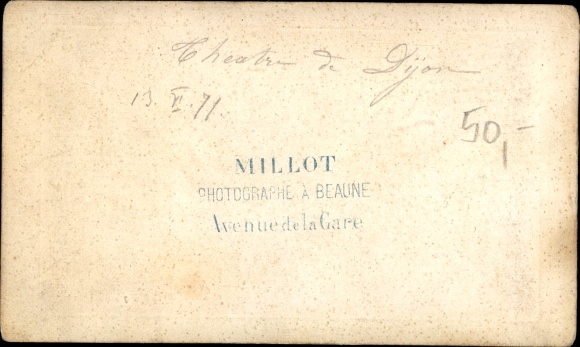 Theatre de Dijon
13. VI. 71.
50,-
MILLOT
PHOTOGRAPHE À BEAUNE
Avenue de la Gare